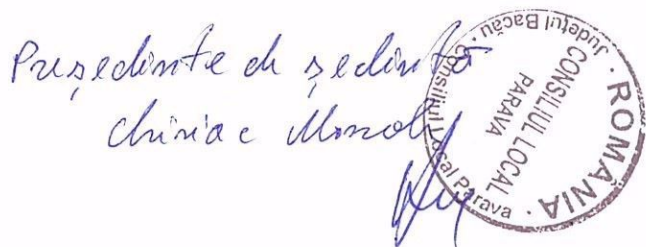 Președinte de ședință
Chiriac
ROMÂNIA
Județul Bacău
Consiliul Local Parava
CONSILIUL LOCAL
PARAVA